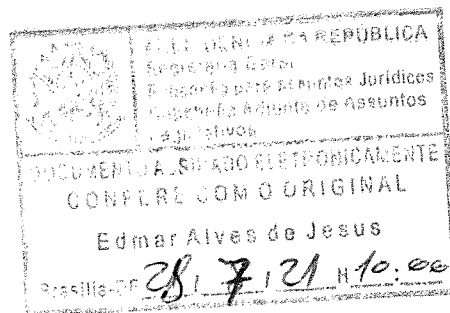 PRESIDÊNCIA DA REPÚBLICA
Secretaria Geral
para Assuntos Jurídicos
Adjunta de Assuntos
Legislativos
DOCUMENTO ASSINADO ELETRONICAMENTE
CONFERE COM O ORIGINAL
Edmar Alves de Jesus
Brasília-DF 28 / 7 / 21 H 10:00